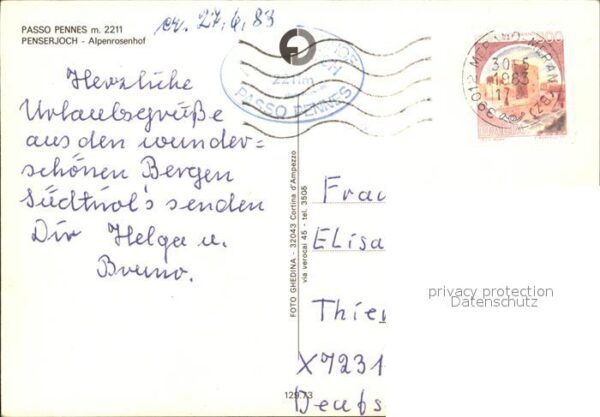 PASSO PENNES m. 2211
PENSERJOCH - Alpenrosenhof
er. 27.6.83
2211m
PASSO PENNES
39012 MERANO-MERAN
30-5
1983
17
(BZ)
Herzliche
Urlaubsgrüße
aus den wunder=
schönen Bergen
Südtirol's senden
Dir Helga u.
Bruno.
FOTO GHEDINA - 32043 Cortina d'Ampezzo
via verocai 45 - tel. 3508
Frau
Elisa
Thier
X7231
Deuts
privacy protection
Datenschutz
129.73